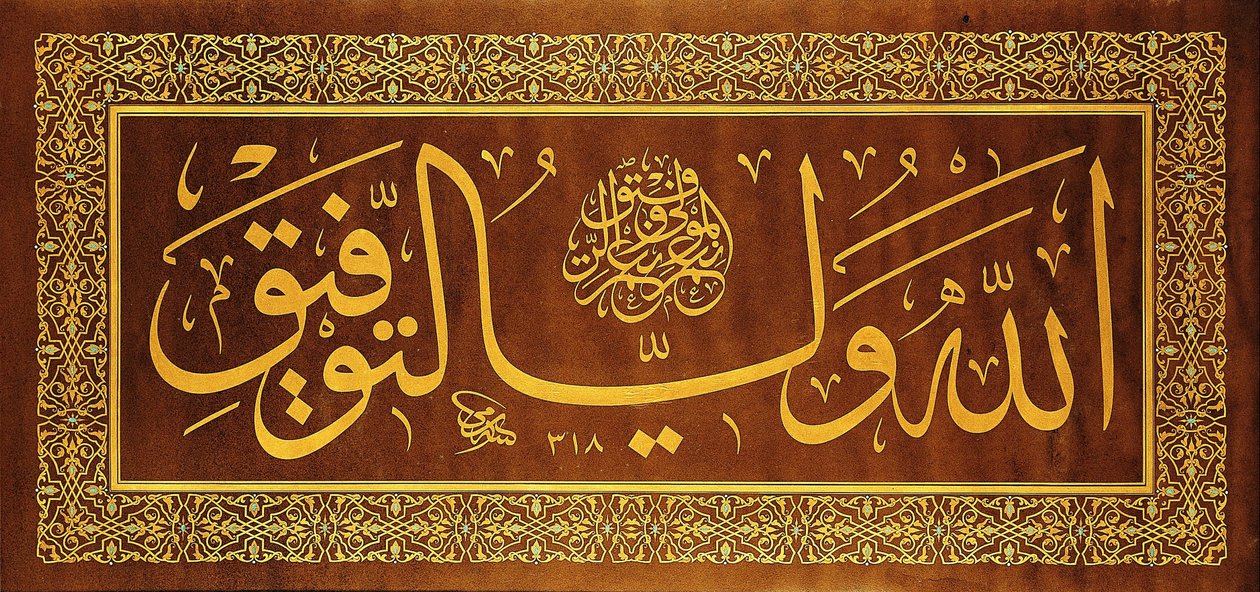 الله وَلِيُّ التَّوفيقِ
نعم المولى ونعم الرفيق
٣١٨